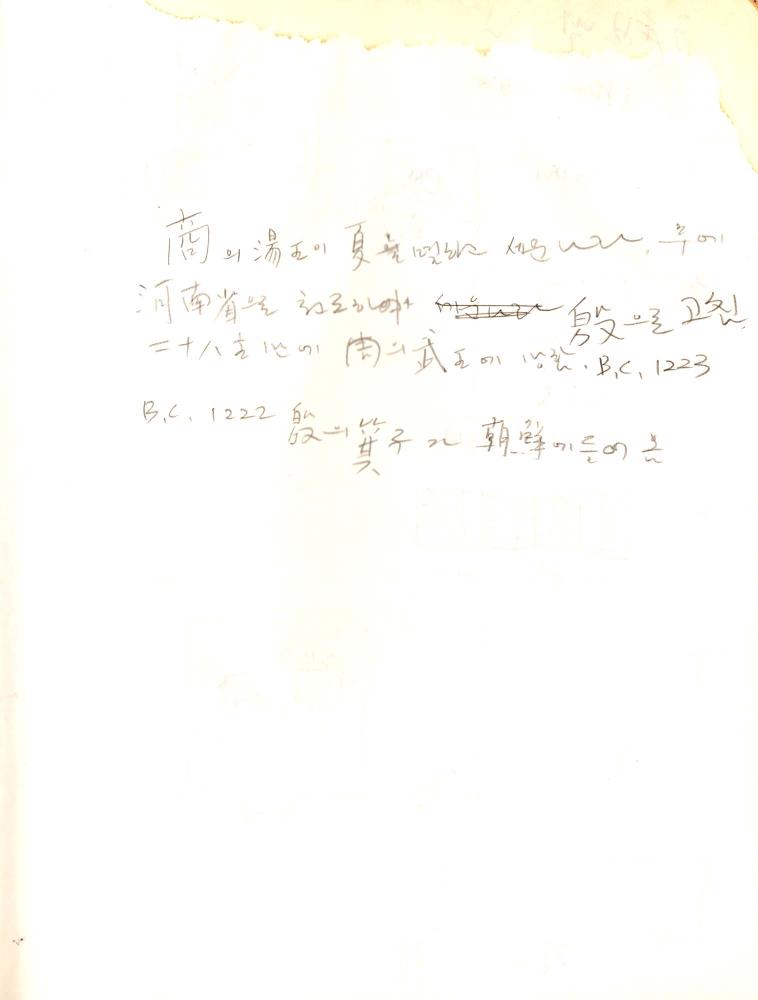 商의 湯王이 夏를 멸하고 세운 나라. 후에
河南省으로 천도하여 殷으로 고침.
二十八主 만에 周의 武王에 망함. B.C. 1223
B.C. 1222 殷의 箕子가 朝鮮에 들어 옴